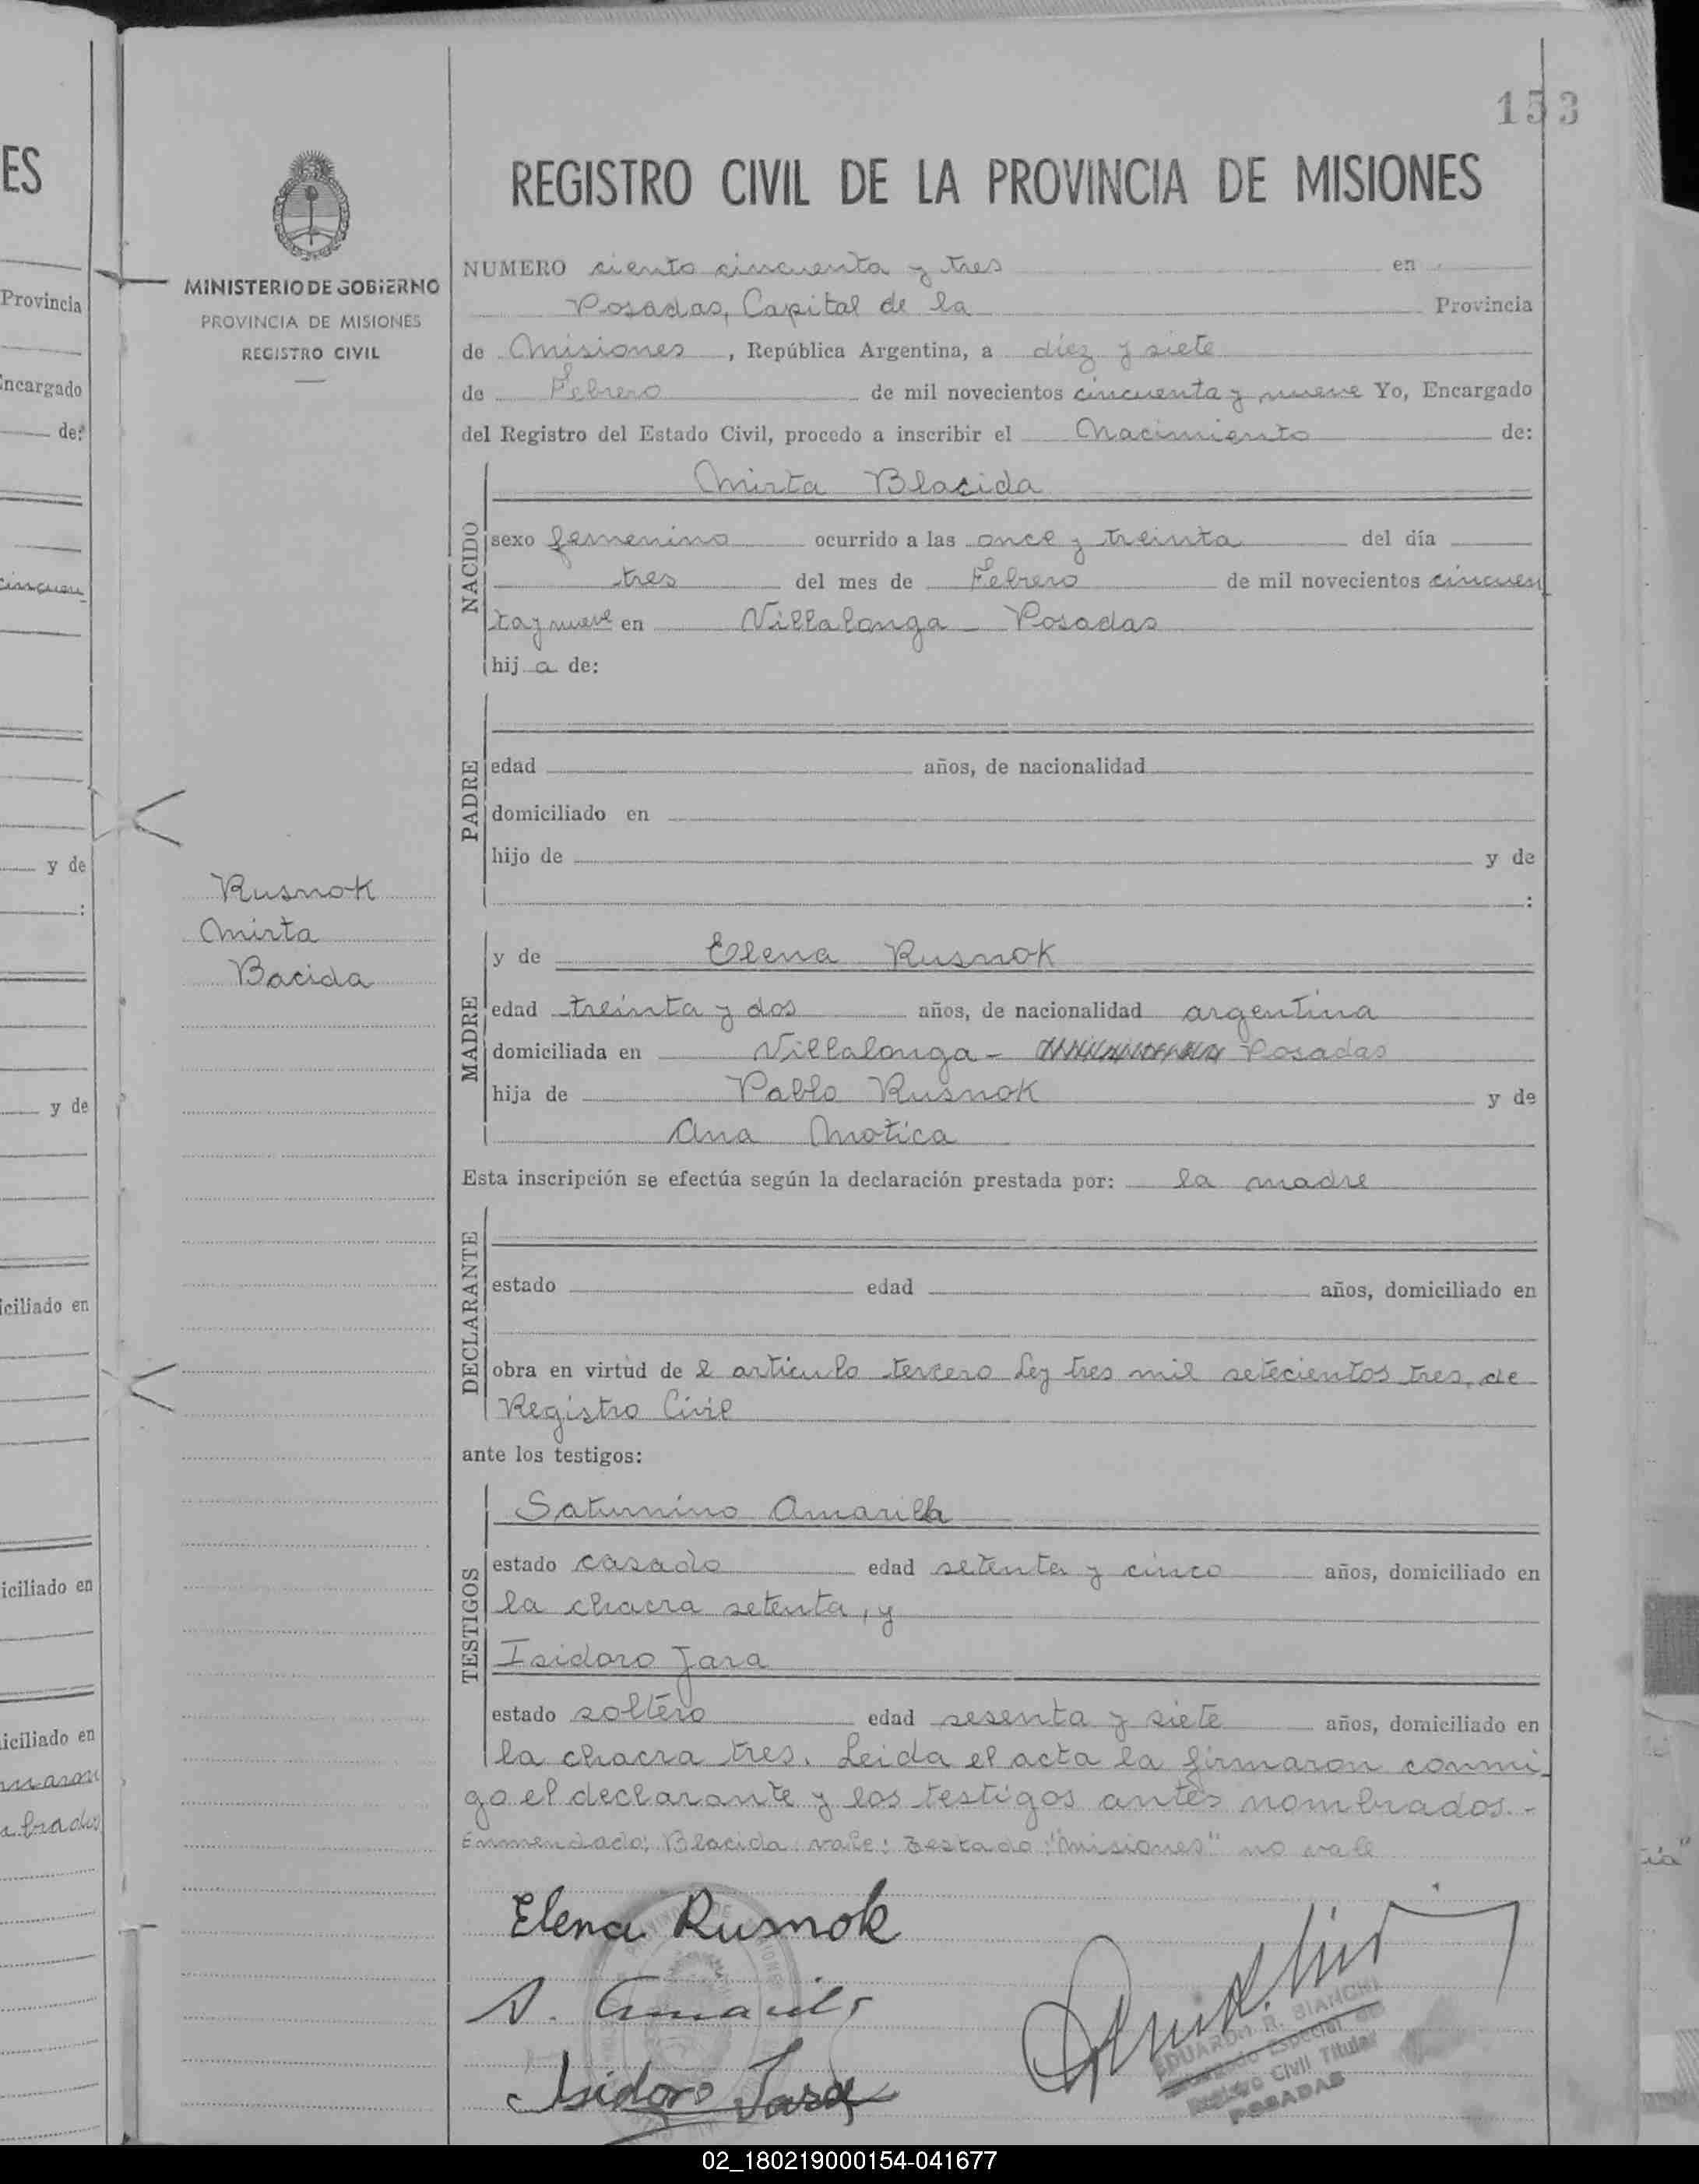 153
ES
REGISTRO CIVIL DE LA PROVINCIA DE MISIONES
MINISTERIO DE GOBIERNO
PROVINCIA DE MISIONES
REGISTRO CIVIL
NUMERO ciento cincuenta y tres en
Posadas, Capital de la Provincia
de Misiones, República Argentina, a diez y siete
de Febrero de mil novecientos cincuenta y nueve Yo, Encargado
del Registro del Estado Civil, procedo a inscribir el Nacimiento de:
NACIDO
Mirta Blacida
sexo femenino ocurrido a las once y treinta del día
tres del mes de Febrero de mil novecientos cincuen
ta y nueve en Villalonga - Posadas
hij a de:
PADRE
edad años, de nacionalidad
domiciliado en
hijo de y de
:
Rusnok
Mirta
Bacida
MADRE
y de Elena Rusnok
edad treinta y dos años, de nacionalidad argentina
domiciliada en Villalonga - Posadas
hija de Pablo Rusnok y de
Ana Motica
Esta inscripción se efectúa según la declaración prestada por: la madre
DECLARANTE
estado edad años, domiciliado en
obra en virtud de l articulo tercero Ley tres mil setecientos tres, de
Registro Civil
ante los testigos:
TESTIGOS
Saturnino Amarilla
estado casado edad setenta y cinco años, domiciliado en
la chacra setenta, y
Isidoro Jara
estado soltero edad sesenta y siete años, domiciliado en
la chacra tres. Leida el acta la firmaron conmi
go el declarante y los testigos antes nombrados.-
Enmendado: Blacida: vale: Testado: "Misiones" no vale
Elena Rusnok
S. Amarilla
Isidoro Jara
EDUARDO R. BIANCHI
Encargado Especial de
Registro Civil Titular
POSADAS
Provincia
Encargado
de:
cincuen
y de
:
y de
iciliado en
iciliado en
iciliado en
maron
mbrados
02_180219000154-041677